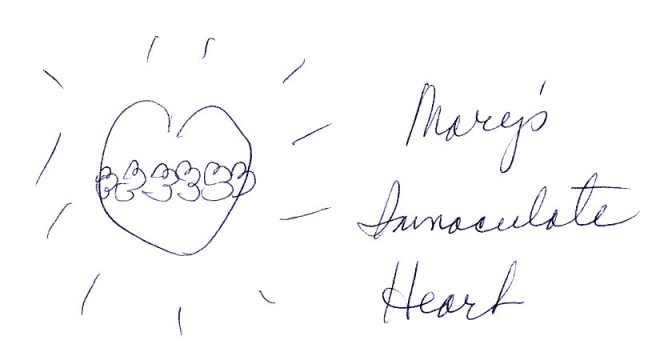 Mary's
Immaculate
Heart